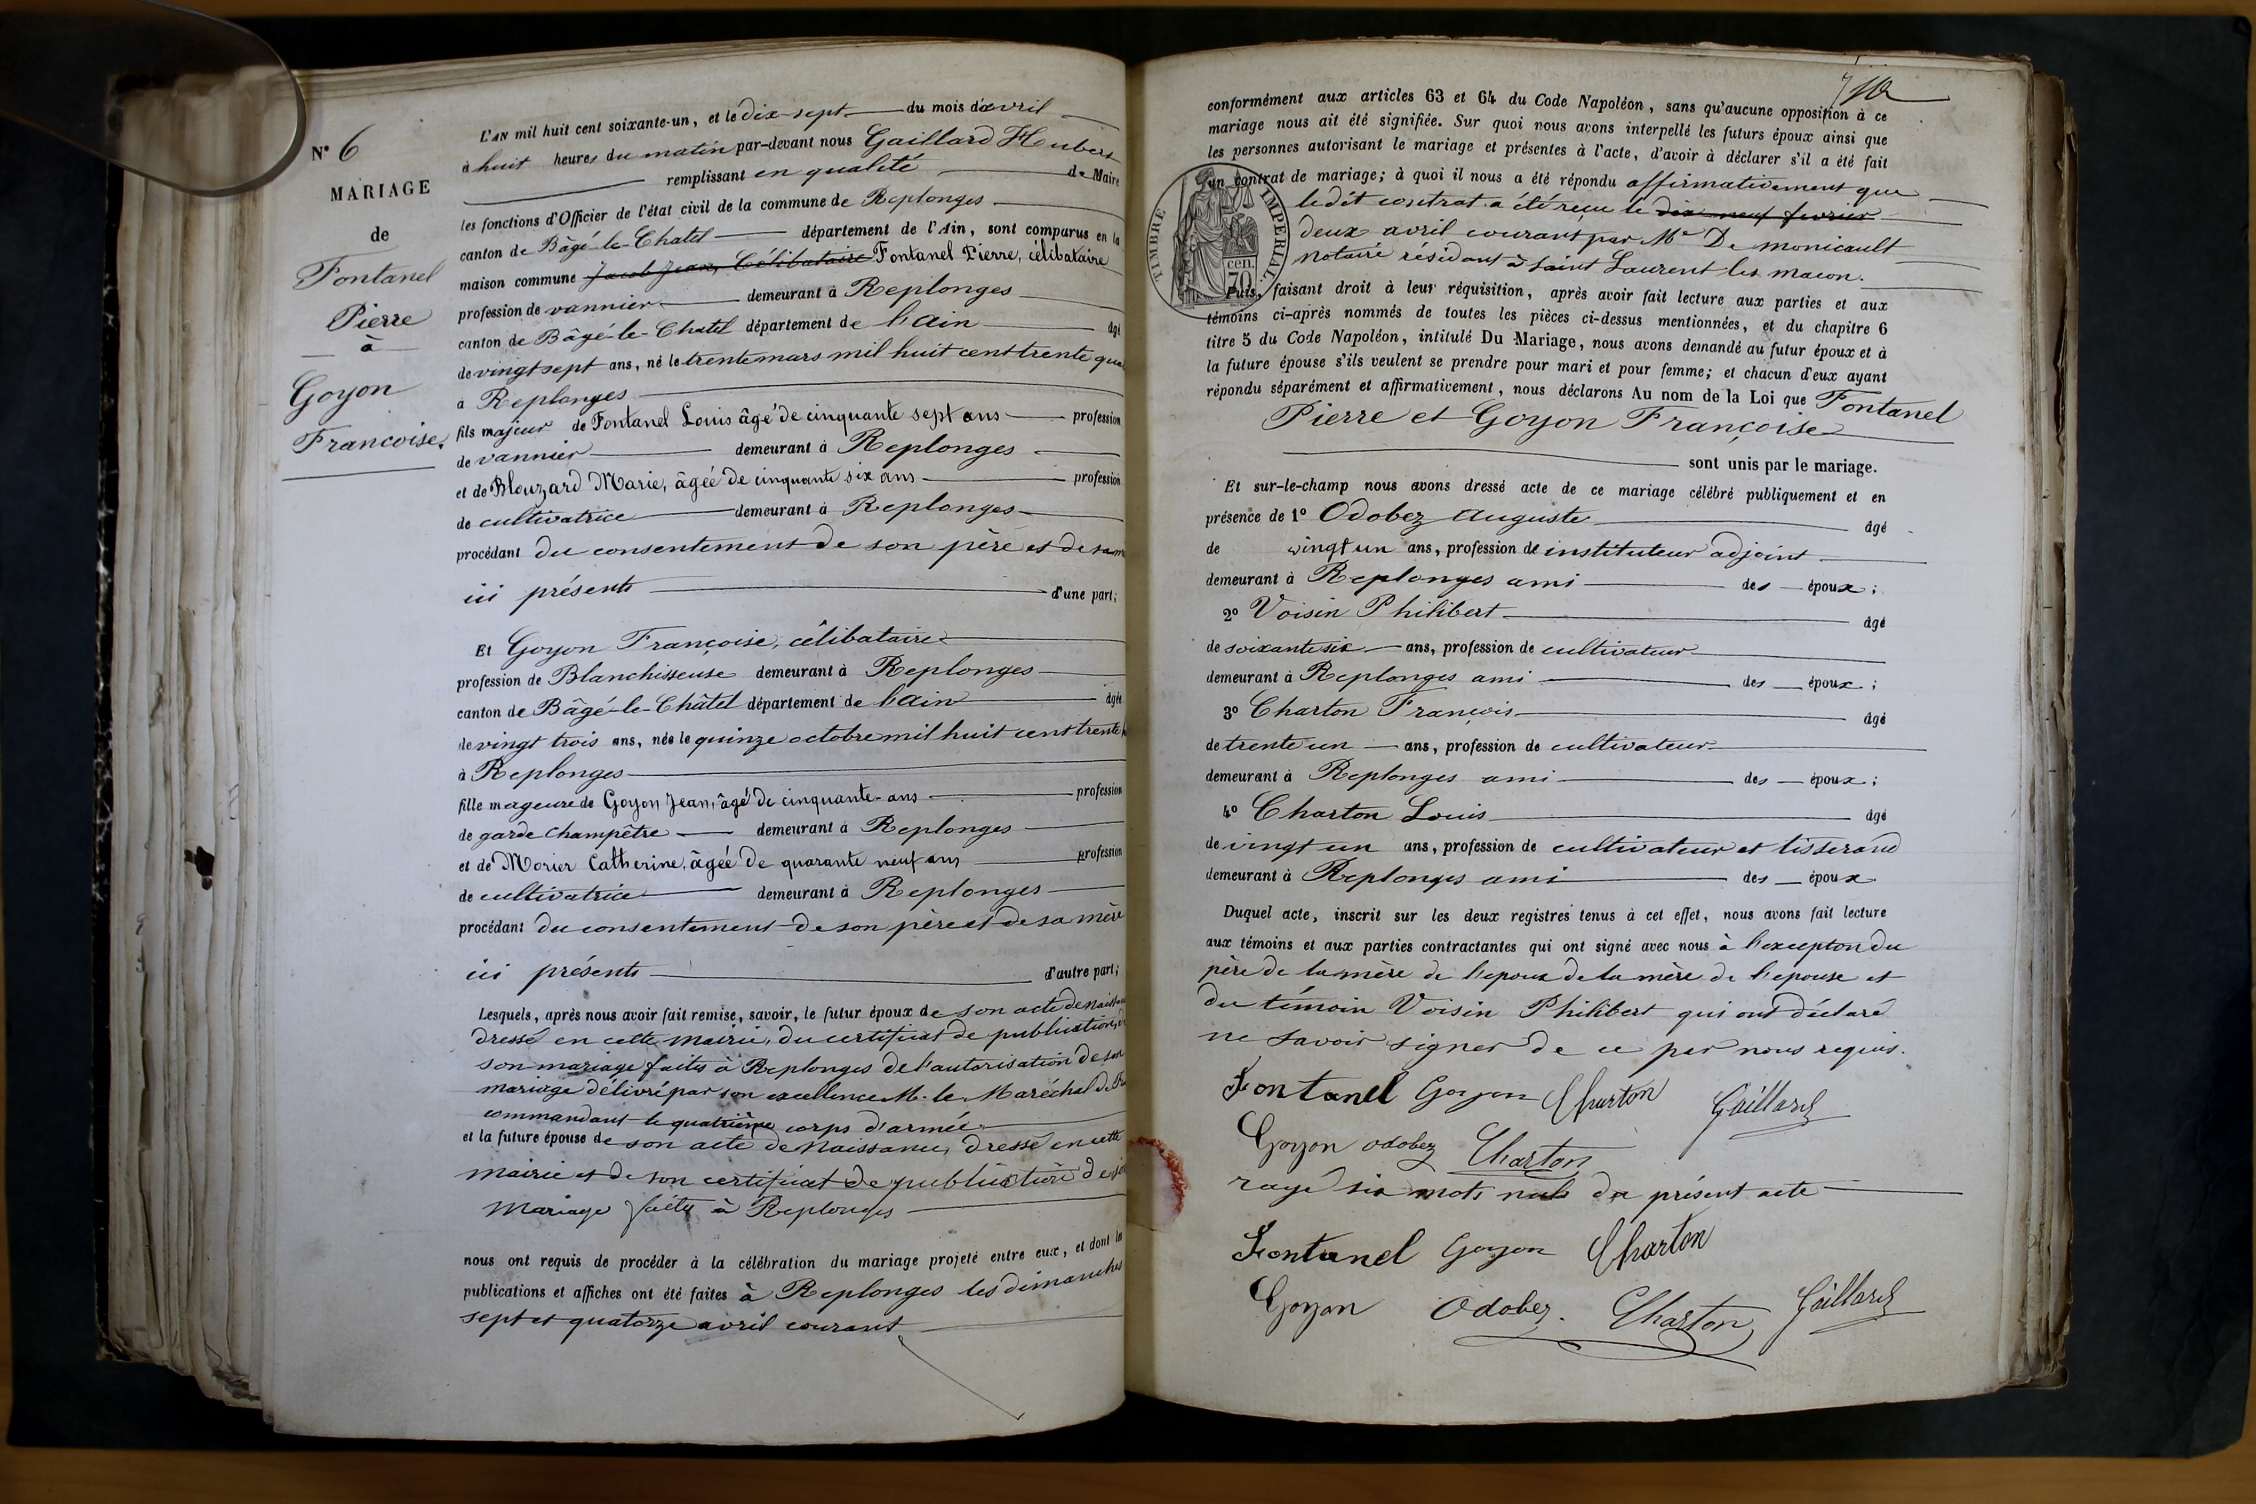 N° 6
MARIAGE
de
Fontanel
Pierre
à
Goyon
Francoise.
L'AN mil huit cent soixante-un, et le dix-sept du mois d'avril
à huit heures du matin par-devant nous Gaillard Hubert
remplissant en qualité de Maire
les fonctions d'Officier de l'état civil de la commune de Replonges
canton de Bâgé-le-Chatel département de l'Ain, sont comparus en la
maison commune Jacob Jean, Célibataire Fontanel Pierre, célibataire
profession de vannier demeurant à Replonges
canton de Bâgé-le-Chatel département de l'ain âgé
de vingt sept ans, né le trente mars mil huit cent trente qua
à Replonges
fils majeur de Fontanel Louis âgé de cinquante sept ans profession
de vannier demeurant à Replonges
et de Blouzard Marie, âgée de cinquante six ans profession
de cultivatrice demeurant à Replonges
procédant du consentement de son père et de sa m
ici présents d'une part;
Et Goyon Françoise, célibataire
profession de Blanchisseuse demeurant à Replonges
canton de Bâgé-le-Châtel département de l'ain âgée
de vingt trois ans, née le quinze octobre mil huit cent trente
à Replonges
fille mageure de Goyon Jean, âgé de cinquante-ans profession
de garde champêtre demeurant à Replonges
et de Morier Catherine, âgée de quarante neuf ans profession
de cultivatrice demeurant à Replonges
procédant du consentement de son père et de sa mère
ici présents d'autre part;
Lesquels, après nous avoir fait remise, savoir, le futur époux de son acte de naissan
dressé en cette mairie, du certificat de publication, de
son mariage faites à Replonges de l'autorisation de son
mariage délivré par son excellence M. le Maréchal de Fra
commandant le quatrième corps d'armée
et la future épouse de son acte de Naissance, dressé en cette
mairie et de son certificat de publication de son
mariage faites à Replonges
nous ont requis de procéder à la célébration du mariage projeté entre eux, et dont les
publications et affiches ont été faites à Replonges les dimanches
sept et quatorze avril courant
conformément aux articles 63 et 64 du Code Napoléon, sans qu'aucune opposition à ce
mariage nous ait été signifiée. Sur quoi nous avons interpellé les futurs époux ainsi que
les personnes autorisant le mariage et présentes à l'acte, d'avoir à déclarer s'il a été fait
un contrat de mariage; à quoi il nous a été répondu affirmativement que
le dit contrat a été reçu le dix neuf fevrier
deux avril courant par Me De monicault
notaire résidant à Saint Laurent les macon.
TIMBRE IMPERIAL
70 cen.
Puis, faisant droit à leur réquisition, après avoir fait lecture aux parties et aux
témoins ci-après nommés de toutes les pièces ci-dessus mentionnées, et du chapitre 6
titre 5 du Code Napoléon, intitulé Du Mariage, nous avons demandé au futur époux et à
la future épouse s'ils veulent se prendre pour mari et pour femme; et chacun d'eux ayant
répondu séparément et affirmativement, nous déclarons Au nom de la Loi que Fontanel
Pierre et Goyon Françoise
sont unis par le mariage.
Et sur-le-champ nous avons dressé acte de ce mariage célébré publiquement et en
présence de 1° Odobez Auguste âgé
de vingt un ans, profession de instituteur adjoint
demeurant à Replonges ami des époux;
2° Voisin Philibert âgé
de soixante six ans, profession de cultivateur
demeurant à Replonges ami des époux;
3° Charton François âgé
de trente un ans, profession de cultivateur
demeurant à Replonges ami des époux;
4° Charton Louis âgé
de vingt un ans, profession de cultivateur et tisserand
demeurant à Replonges ami des époux
Duquel acte, inscrit sur les deux registres tenus à cet effet, nous avons fait lecture
aux témoins et aux parties contractantes qui ont signé avec nous à l'excepton du
père de la mère de l'epoux de la mère de l'epouse et
du témoin Voisin Philibert qui ont déclaré
ne savoir signer de ce par nous requis.
Fontanel Goyon Charton Gaillard
Goyon Odobez Charton
rayé six mots nuls du présent acte
Fontanel Goyon Charton
Goyon Odobez. Charton Gaillard